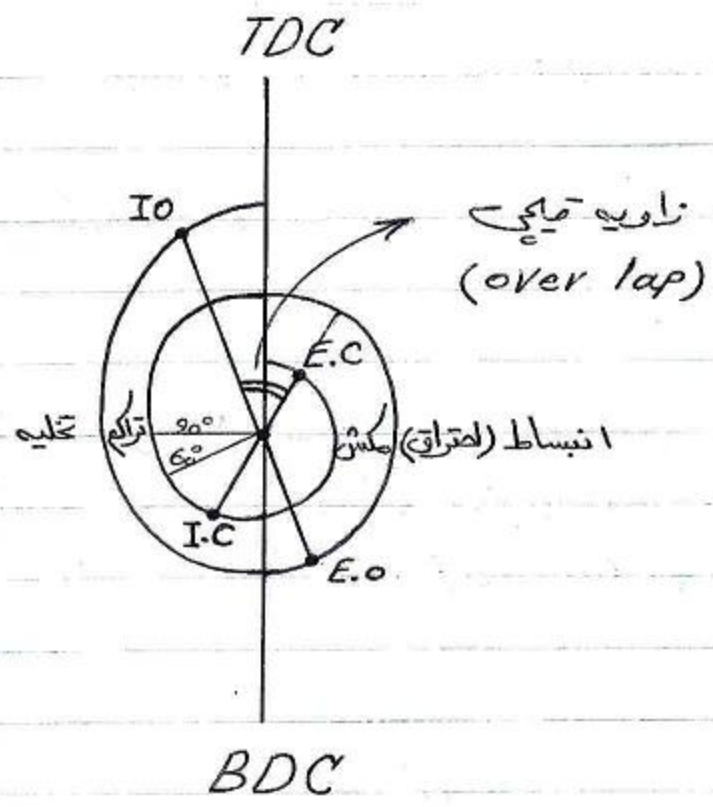 TDC
IO
زاویه قیچی
(over lap)
E.C
تخلیه
تراکم
90°
60°
مکش
انبساط (احتراق)
I.C
E.O
BDC